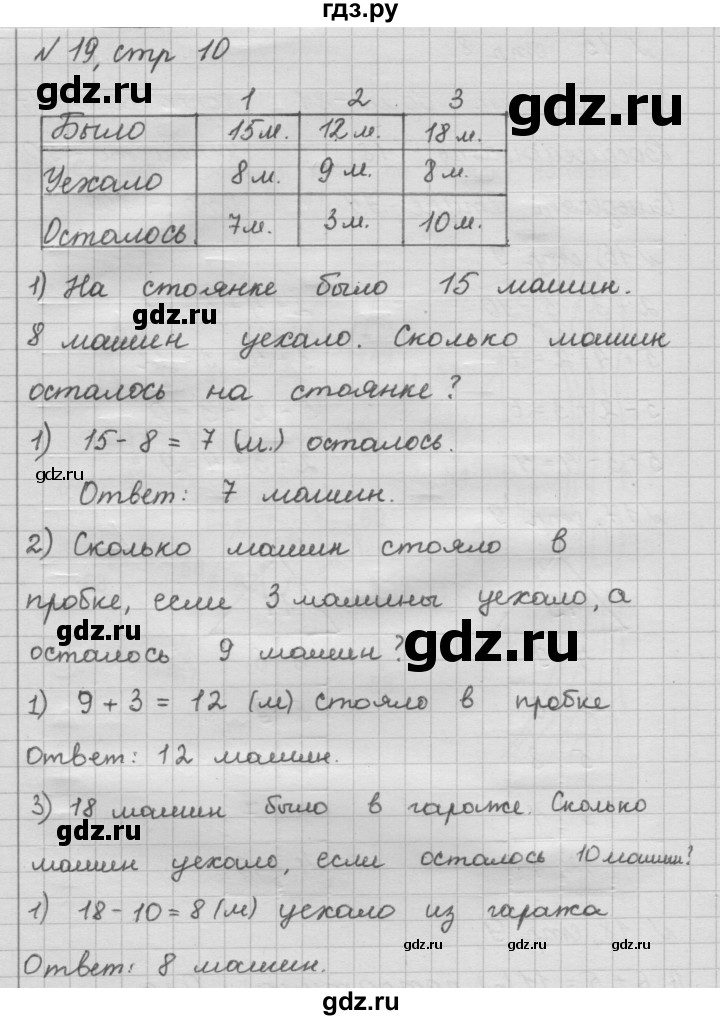 гдз.ру
N 19, стр 10
gdz.ru
gdz.ru
1 2 3
Было 15м. 12 м. 18 м.
Уехало 8 м. 9 м. 8 м.
Осталось 7м. 3м. 10 м.
1) На стоянке было 15 машин.
gdz.ru
8 машин уехало. Сколько машин
осталось на стоянке?
1) 15 - 8 = 7 (м.) осталось.
gdz.ru
Ответ: 7 машин.
2) Сколько машин стояло в
пробке, если 3 машины уехало, а
gdz.ru
gdz.ru
осталось 9 машин?
1) 9 + 3 = 12 (м) стояло в пробке
Ответ: 12 машин.
3) 18 машин было в гараже. Сколько
gdz.ru
машин уехало, если осталось 10 машин?
1) 18 - 10 = 8 (м) уехало из гаража
gdz.ru gdz.ru gdz.ru
Ответ: 8 машин.
gdz.ru